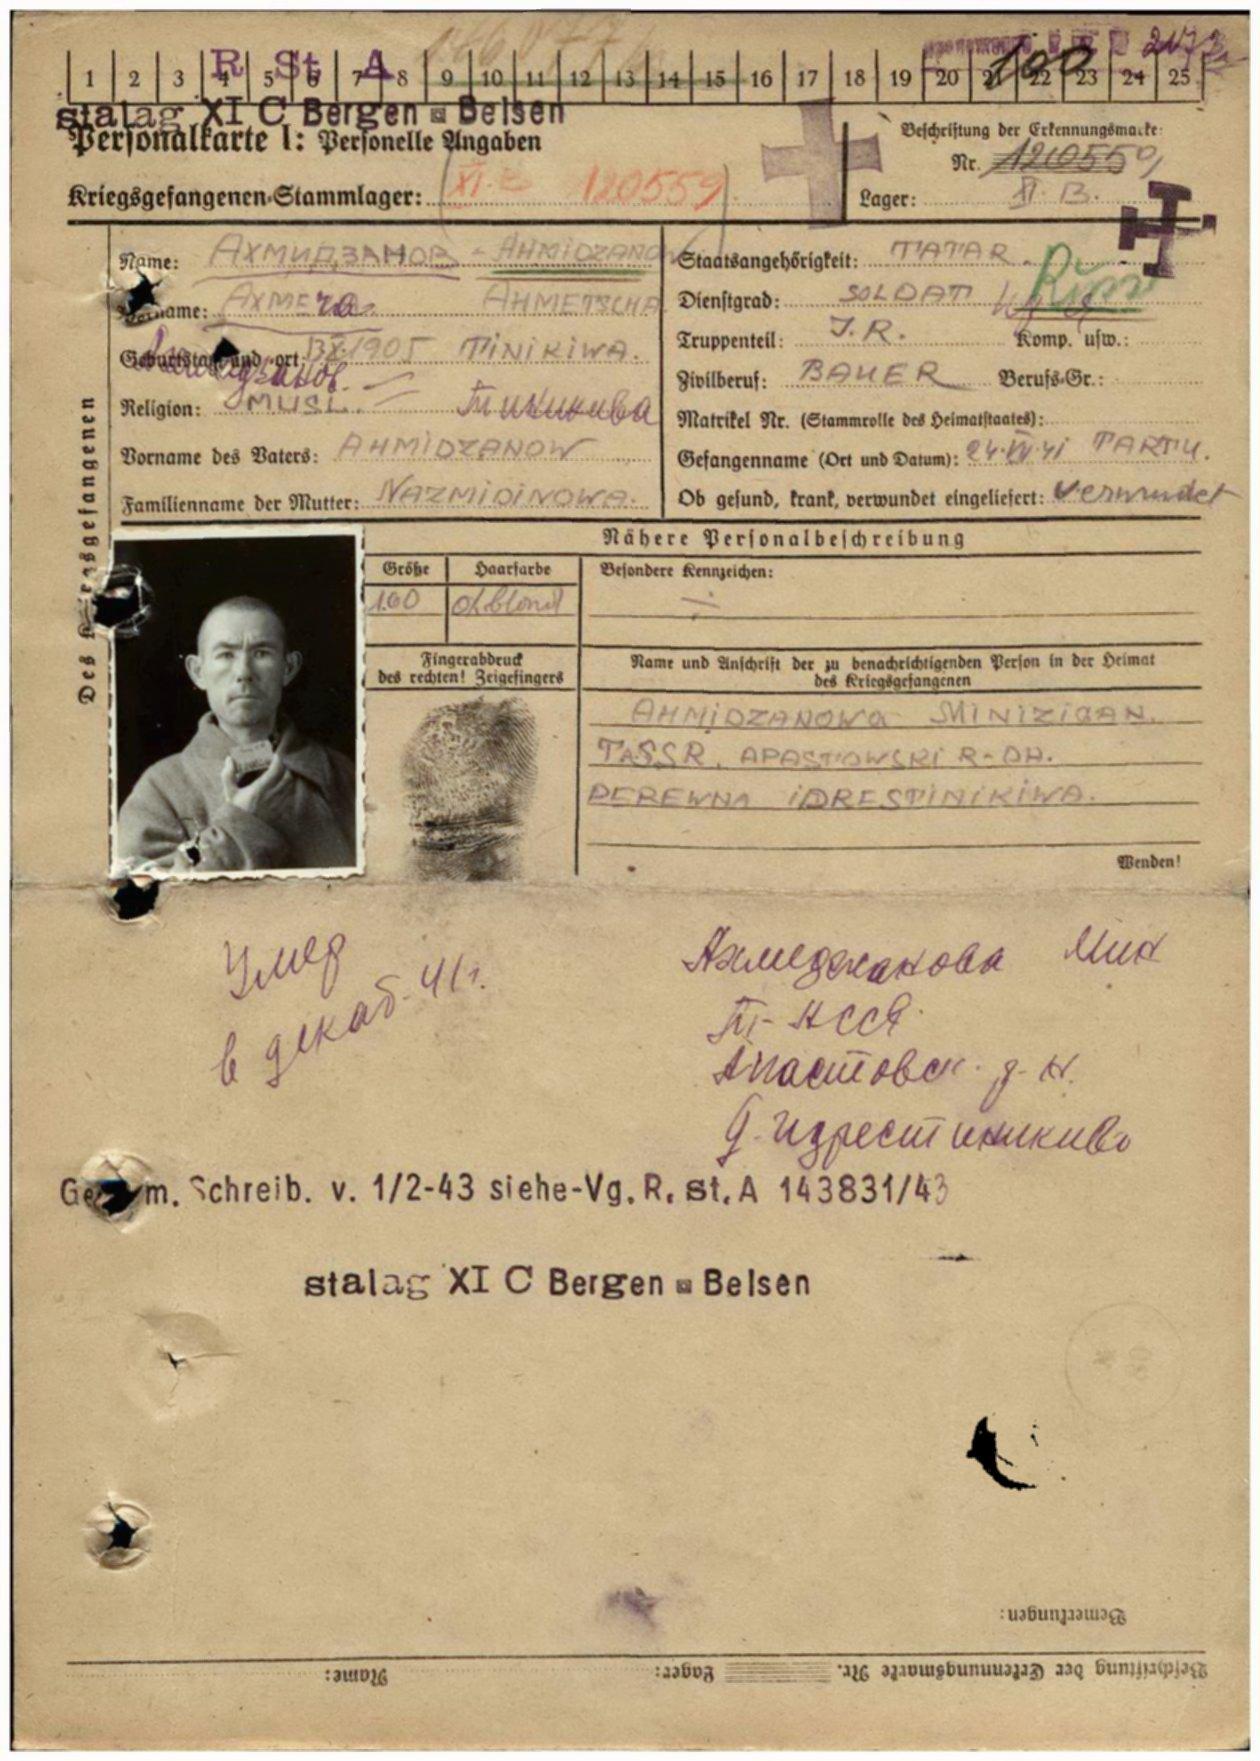 1 2 3 4 5 6 7 8 9 10 11 12 13 14 15 16 17 18 19 20 21 22 23 24 25
R. St. A
100
stalag XI C Bergen - Belsen
Personalkarte I: Personelle Angaben
Beschriftung der Erkennungsmarke:
Nr. 120559
Kriegsgefangenen-Stammlager: XI. B 120559
Lager: XI. B.
Des Kriegsgefangenen
Name: АХМИДЗАНОВ - AHMIDZANOW
Vorname: АХМЕ AHMETSCHA
Geburtstag und -ort: 1905 TINIKIWA.
Religion: MUSL. — Тиникива
Vorname des Vaters: AHMIDZANOW
Familienname der Mutter: NAZMIDINOWA.
Staatsangehörigkeit: TATAR.
Dienstgrad: SOLDAT
Truppenteil: J.R. Komp. usw.:
Zivilberuf: BAUER Berufs-Gr.:
Matrikel Nr. (Stammrolle des Heimatstaates):
Gefangenname (Ort und Datum): 24.VII.41 TARTU.
Ob gesund, krank, verwundet eingeliefert: verwundet
Nähere Personalbeschreibung
Größe Haarfarbe Besondere Kennzeichen:
1.60 d.blond
Fingerabdruck
des rechten! Zeigefingers
Name und Anschrift der zu benachrichtigenden Person in der Heimat
des Kriegsgefangenen
AHMIDZANOWA MINIZIGAN.
TASSR. APASTOWSKI R-ON.
DEREWNA IDRESTINIKIWA.
Wenden!
Умер
в декаб-41г.
Ахмеджанова Мин
Апастовск.
д. Идрестиникиво
m. Schreib. v. 1/2-43 siehe-Vg. R. st. A 143831/43
stalag XI C Bergen - Belsen
Bemerkungen:
Beschriftung der Erkennungsmarke Nr. Lager: Name: